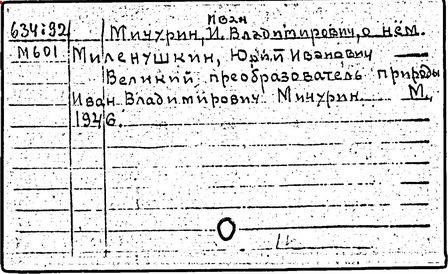 Иван
634:92 Мичурин, И. Владимирович, о нём.
М601 Миленушкин, Юрий Иванович
Великий преобразователь природы
Иван Владимирович Мичурин. М.,
1946.